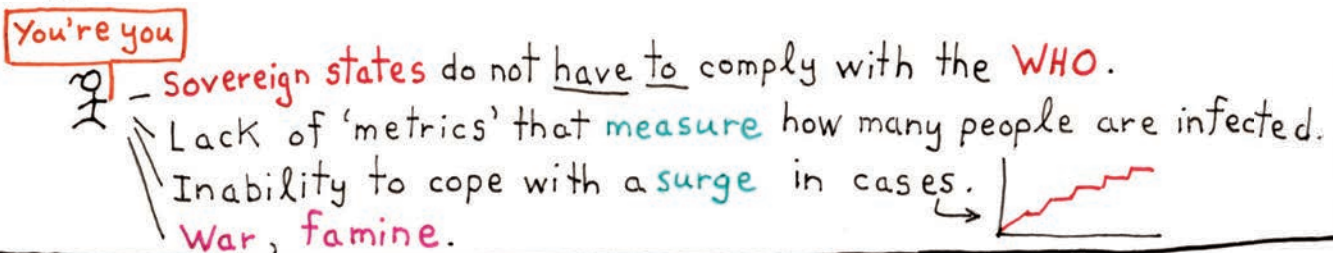 You're you
– Sovereign states do not have to comply with the WHO.
Lack of 'metrics' that measure how many people are infected.
Inability to cope with a surge in cases.
War, famine.